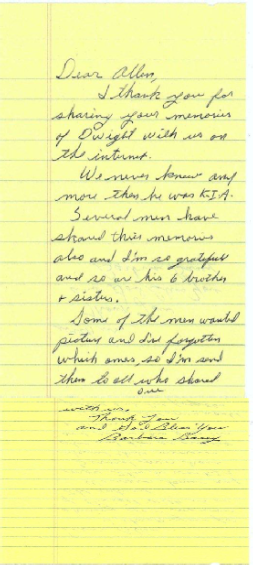 Dear Allen,
I thank you for
sharing your memories
of Dwight with us on
the internet.
We never knew any
more then he was K.I.A.
Several men have
shared thier memories
also and I'm so grateful
and so are his 6 brothers
+ sisters.
Some of the men wanted
picture and I've forgotten
which ones, so I'm send
them to all who shared
with us.
Thank You
and God Bless You
Barbara